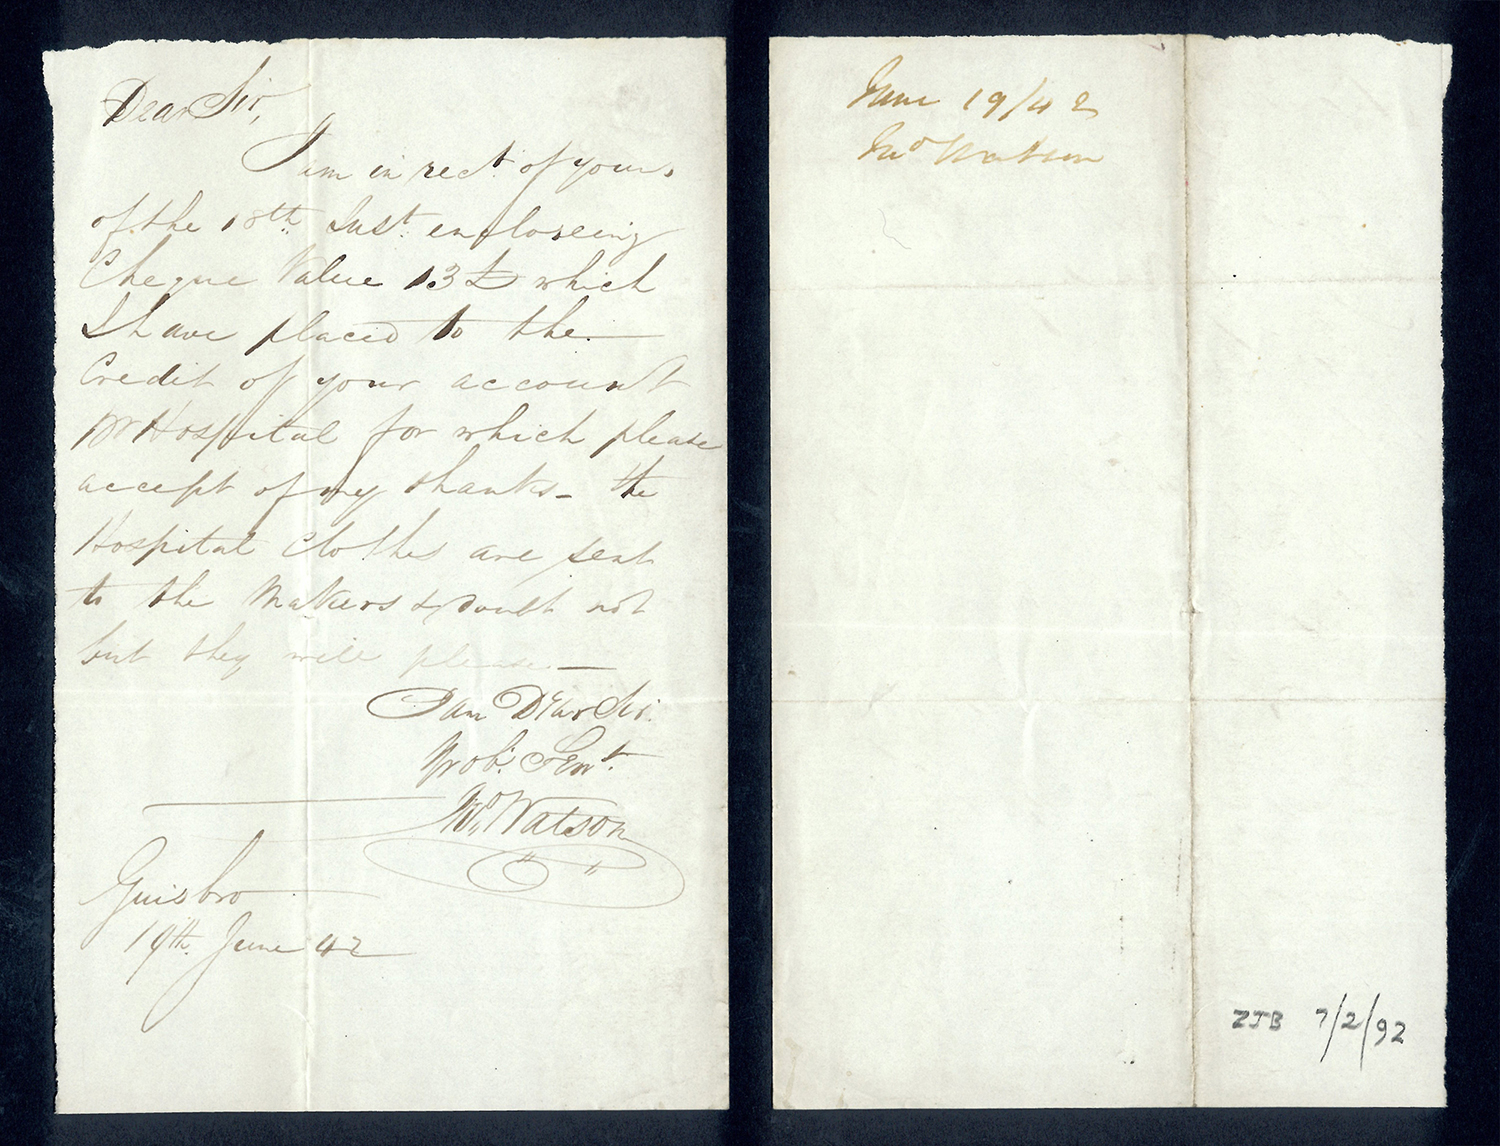 Dear Sir,
I am in rect. of yours
of the 18th Inst. encloseing
Cheque Value 13£ which
I have placed to the
Credit of your account
Hospital for which please
accept of my thanks – the
Hospital Clothes are sent
to the Makers & doubt not
but they will please —
I am Dear Sir.
Yr ob. Sernt.
Jno. Watson
Guisbro
19th. June 42
June 19/42
Jno Watson
ZJB 7/2/92